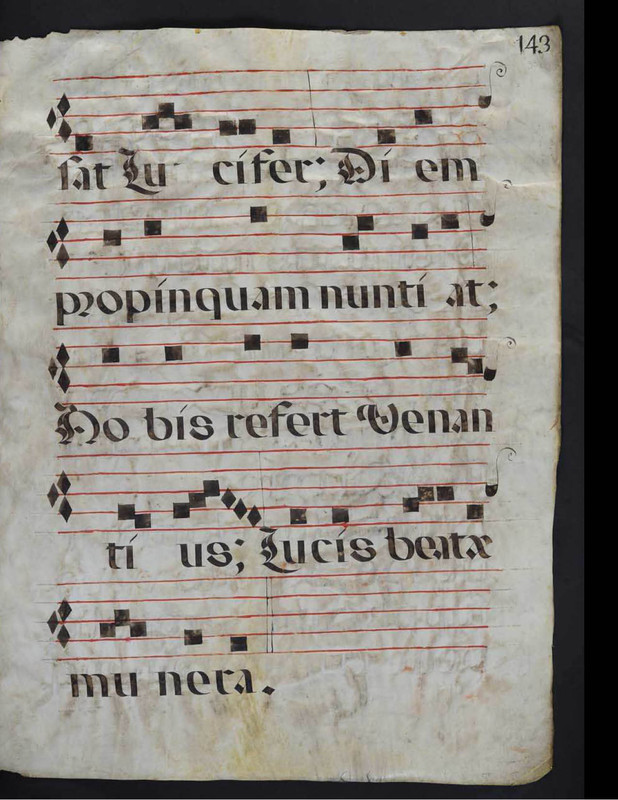 143
sat Lu cifer; Di em
propinquam nunti at;
No bis refert Venan
ti us; Lucis beatæ
mu nera.